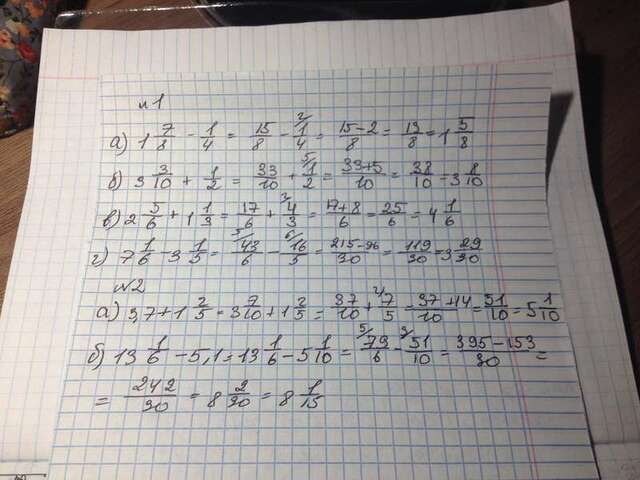 №1
а) 1 7/8 - 1/4 = 15/8 - 2/ 1/4 = 15-2/8 = 13/8 = 1 5/8
б) 3 3/10 + 1/2 = 33/10 + 5/ 1/2 = 33+5/10 = 38/10 = 3 8/10
в) 2 5/6 + 1 1/3 = 17/6 + 2/ 4/3 = 17+8/6 = 25/6 = 4 1/6
г) 7 1/6 - 3 1/5 = 5/ 43/6 - 6/ 16/5 = 215-96/30 = 119/30 = 3 29/30
№2
а) 3,7 + 1 2/5 = 3 7/10 + 1 2/5 = 37/10 + 2/ 7/5 = 37+14/10 = 51/10 = 5 1/10
б) 13 1/6 - 5,1 = 13 1/6 - 5 1/10 = 5/ 79/6 - 3/ 51/10 = 395-153/30 =
= 242/30 = 8 2/30 = 8 1/15